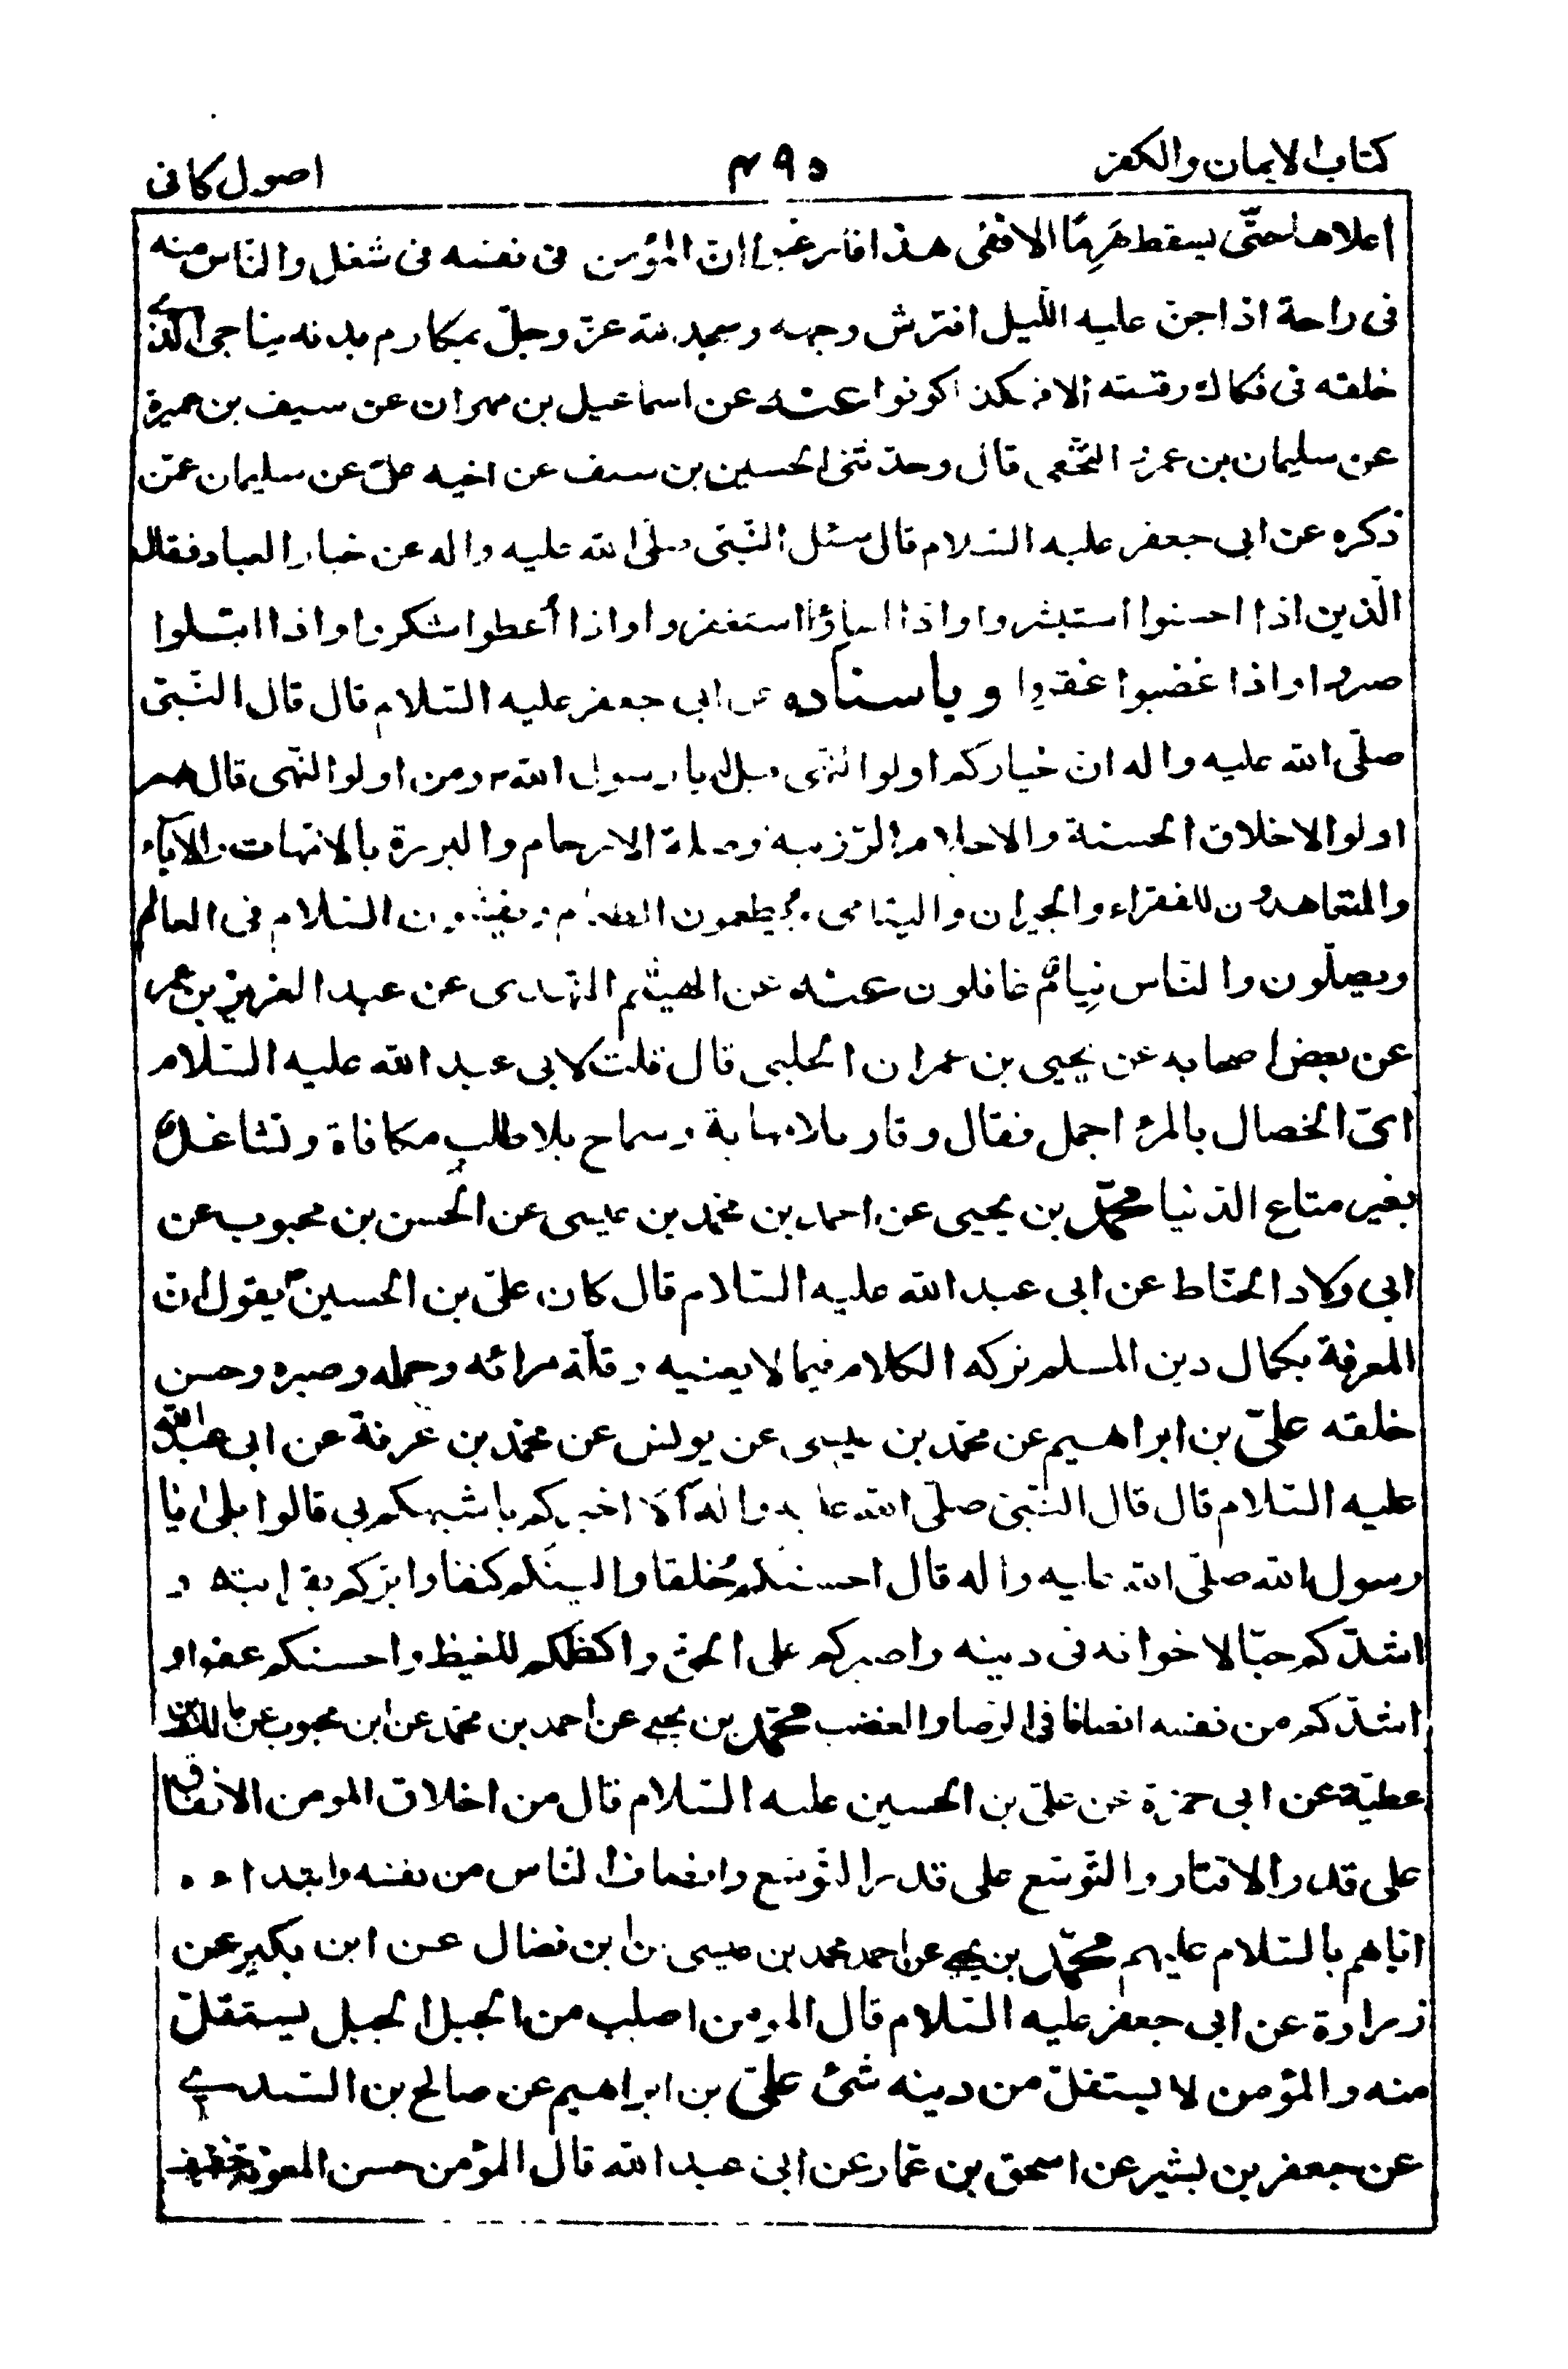 كتاب الايمان والكفر
۴۹۵
اصول كافى
اعلاها حتّى يسقط هَرِمًا الا ففى هذا فارغبوا انّ المؤمن فى نفسه فى شغل والنّاس منه
فى راحة اذا جنّ عليه اللّيل افترش وجهه وسجد لله عزّ وجلّ بمكارم بدنه يناجى الّذى
خلقه فى فكاك رقبته الا فهكذا كونوا عنه عن اسماعيل بن مهران عن سيف بن عميرة
عن سليمان بن عمرو النّخعى قال وحدّثنى الحسين بن سيف عن اخيه علىّ عن سليمان عمّن
ذكره عن ابى جعفر عليه السّلام قال سئل النّبىّ صلّى الله عليه واله عن خيار العباد فقال
الّذين اذا احسنوا استبشروا واذا اساؤا استغفروا واذا أعطوا شكروا واذا ابتلوا
صبروا واذا غضبوا غفروا وباسناده عن ابى جعفر عليه السّلام قال قال النّبىّ
صلّى الله عليه واله انّ خياركم اولوا النّهى قيل يا رسول الله ومن اولوا النّهى قال هم
اولوا الاخلاق الحسنة والاحلام الرّزينة وصلة الارحام والبررة بالامّهات والاباء
والمتعاهدون للفقراء والجيران واليتامى ويطعمون الطعام ويفشون السّلام فى العالم
ويصلّون والنّاس نِيامٌ غافلون عنه عن الهيثم النّهدى عن عبد العزيز بن عمر
عن بعض اصحابه عن يحيى بن عمران الحلبى قال قلت لابى عبد الله عليه السّلام
اىّ الخصال بالمرء اجمل فقال وقار بلا مهابة وسماح بلا طلب مكافاة وتشاغل
بغير متاع الدّنيا محمّد بن يحيى عن احمد بن محمّد بن عيسى عن الحسن بن محبوب عن
ابى ولاد الحنّاط عن ابى عبد الله عليه السّلام قال كان علىّ بن الحسين يقول انّ
المعرفة بكمال دين المسلم تركه الكلام فيما لا يعنيه وقلّة مرائه وحمله وصبره وحسن
خلقه علىّ بن ابراهيم عن محمّد بن عيسى عن يونس عن محمّد بن عرفة عن ابى عبد الله
عليه السّلام قال قال النّبىّ صلّى الله عليه واله الا اخبركم باشبهكم بى قالوا بلى يا
رسول الله صلّى الله عليه واله قال احسنكم خُلقا والينكم كنفا وابرّكم بقرابته و
اشدّكم حبّا لاخوانه فى دينه واصبركم على الحق واكظمكم للغيظ واحسنكم عفوا و
اشدّكم من نفسه انصافا فى الرضا والغضب محمّد بن يحيى عن احمد بن محمّد عن ابن محبوب عن مالك بن
عطيّة عن ابى حمزة عن علىّ بن الحسين عليه السّلام قال من اخلاق المومن الانفاق
على قدر الاقتار والتّوسّع على قدر التّوسّع وانصاف النّاس من نفسه وابتداءه
ايّاهم بالسّلام عليهم محمّد بن يحيى عن احمد محمد بن عيسى عن ابن فضال عن ابن بكير عن
زرارة عن ابى جعفر عليه السّلام قال المومن اصلب من الجبل الجبل يستقلّ
منه والمؤمن لا يستقلّ من دينه شئ علىّ بن ابراهيم عن صالح بن السّندى
عن جعفر بن بشير عن اسحق بن عمّار عن ابى عبد الله قال المؤمن حسن المعونة خفيف